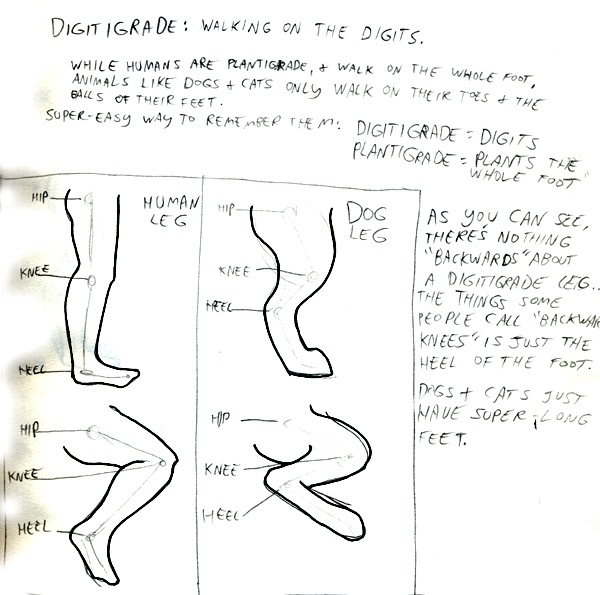 DIGITIGRADE: WALKING ON THE DIGITS.
WHILE HUMANS ARE PLANTIGRADE, & WALK ON THE WHOLE FOOT,
ANIMALS LIKE DOGS & CATS ONLY WALK ON THEIR TOES & THE
BALLS OF THEIR FEET.
SUPER-EASY WAY TO REMEMBER THEM:
DIGITIGRADE = DIGITS
PLANTIGRADE = "PLANTS THE
WHOLE FOOT"
HUMAN
LEG
HIP
KNEE
HEEL
HIP
KNEE
HEEL
DOG
LEG
HIP
KNEE
HEEL
HIP
KNEE
HEEL
AS YOU CAN SEE,
THERE'S NOTHING
"BACKWARDS" ABOUT
A DIGITIGRADE LEG..
THE THINGS SOME
PEOPLE CALL "BACKWAR
KNEES" IS JUST THE
HEEL OF THE FOOT.
DOGS + CATS JUST
HAVE SUPER-LONG
FEET.